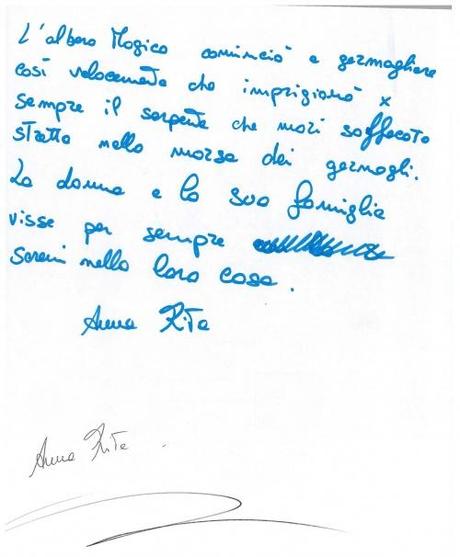 L'albero Magico cominciò a germogliare
così velocemente che imprigionò x
sempre il serpente che morì soffocato
stretto nella morsa dei germogli.
La donna e la sua famiglia
visse per sempre
sereni nella loro casa.
Anna Rita
Anna Rita